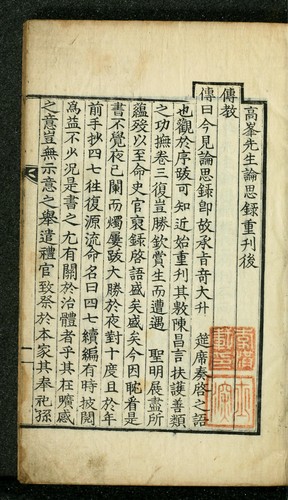 高峯先生論思錄重刊後
傳教
傳曰今見論思錄卽故承旨奇大升 筵席奏啓之語
也觀於序跋可知近始重刊其敷陳昌言扶護善類
之功撫卷三復豈勝欽賞生而遭遇 聖明展盡所
蘊歿以至命史官裒錄啓語盛矣盛矣今因耽看是
書不覺夜已闌而燭屢跋大勝於夜對十度且於年
前手抄四七往復源流命名曰四七續編有時披閱
爲益不少況是書之尤有關於治體者乎其在曠感
之意豈無示意之擧遣禮官致祭於本家其奉祀孫